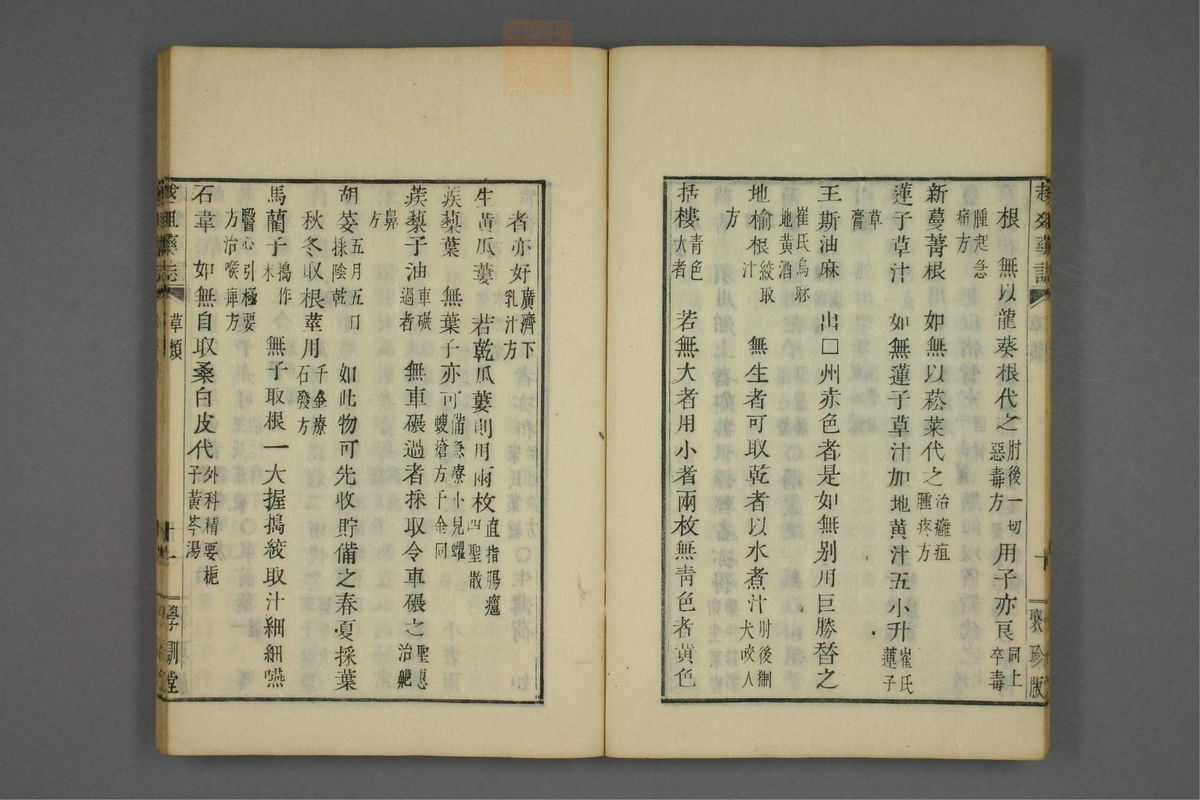 根　無以龍葵根代之肘後一切惡毒方用子亦良同上卒毒
腫起急痛方
新蔓菁根　如無以菘菜代之治癰疽腫疼方
蓮子草汁　如無蓮子草汁加地黄汁五小升崔氏蓮子
草膏
王斯油麻　出□州赤色者是如無别用巨勝替之
崔氏烏麻地黄酒
地榆根絞取汁　無生者可取乾者以水煮汁肘後猘犬咬人
方
括樓青色大者　若無大者用小者兩枚無青色者黄色
聚珍版
者亦好廣濟下乳汁方
生黄瓜蔞　若乾瓜蔞則用兩枚直指陽癘四聖散
蒺藜葉　無葉子亦可備急療小兒蠼螋瘡方千金同
蒺藜子油車碾過者　無車碾過者採取令車碾之聖惠治齆
鼻方
胡荽五月五日採陰乾　如此物可先收貯備之春夏採葉
秋冬取根莖用千金療石發方
馬藺子搗作末　無子取根一大握搗絞取汁細細嚥
醫心引極要方治喉痺方
石韋　如無自取桑白皮代外科精要梔子黄芩湯
草類
十一
學訓堂